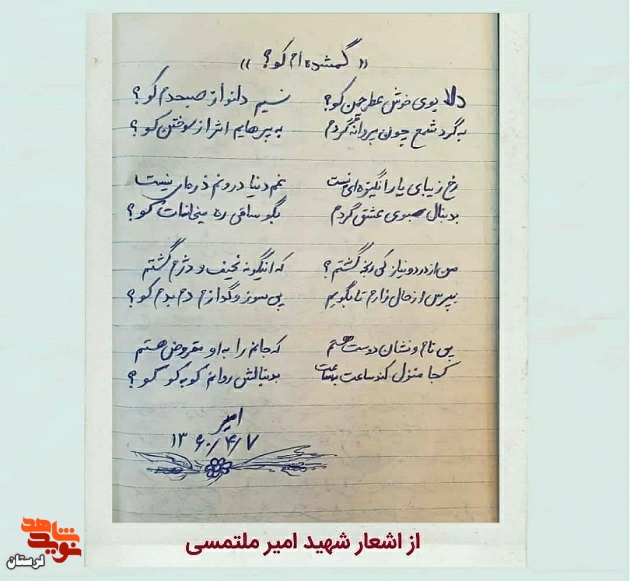 « گمشده‌ام کو؟ »
دلا بوی خوش عطر چمن کو؟ نسیم دلنواز صبحدم کو؟
به گرد شمع چون پروانه گردم به پرهایم اثر از سوختن کو؟
رخ زیبای یار انگیزه‌ای نیست غم دنیا درونم ذره‌ای نیست
بدنبال سبوی عشق گردم بگو ساقی ره میخانه‌ات کو؟
من از درد و نیاز کی رنجه گشتم؟ که اینگونه نحیف و دژم گشتم
بپرس از حال زارم تا بگویم پی سوز و گدازم دم بدم کو؟
پی نام و نشان دوست هستم که جانم را به او مقروض هستم
کجا منزل کند ساعت بساعت بدنبالش روانم کو به کو کو؟
امیر
۱۳۶۰/۴/۷
از اشعار شهید امیر ملتمسی
نوید شاهد
لرستان